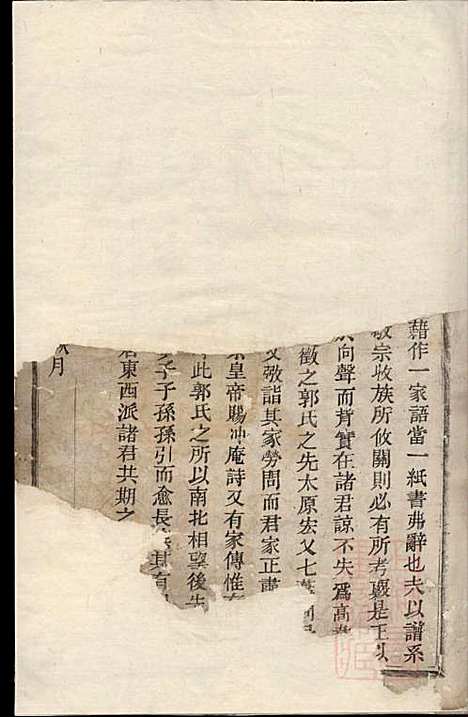 藉作一家語當一紙書弗辭也夫以譜系
敬宗收族所攸關則必有所考覈是正以
向聲而背實在諸君諒不失爲高
徵之郭氏之先太原宏又七
文敬詣其家勞問而君家正肅
皇帝賜冲庵詩又有家傳惟
此郭氏之所以南北相望後先
子子孫孫引而愈長 其有
君東西派諸君共期之
秋月